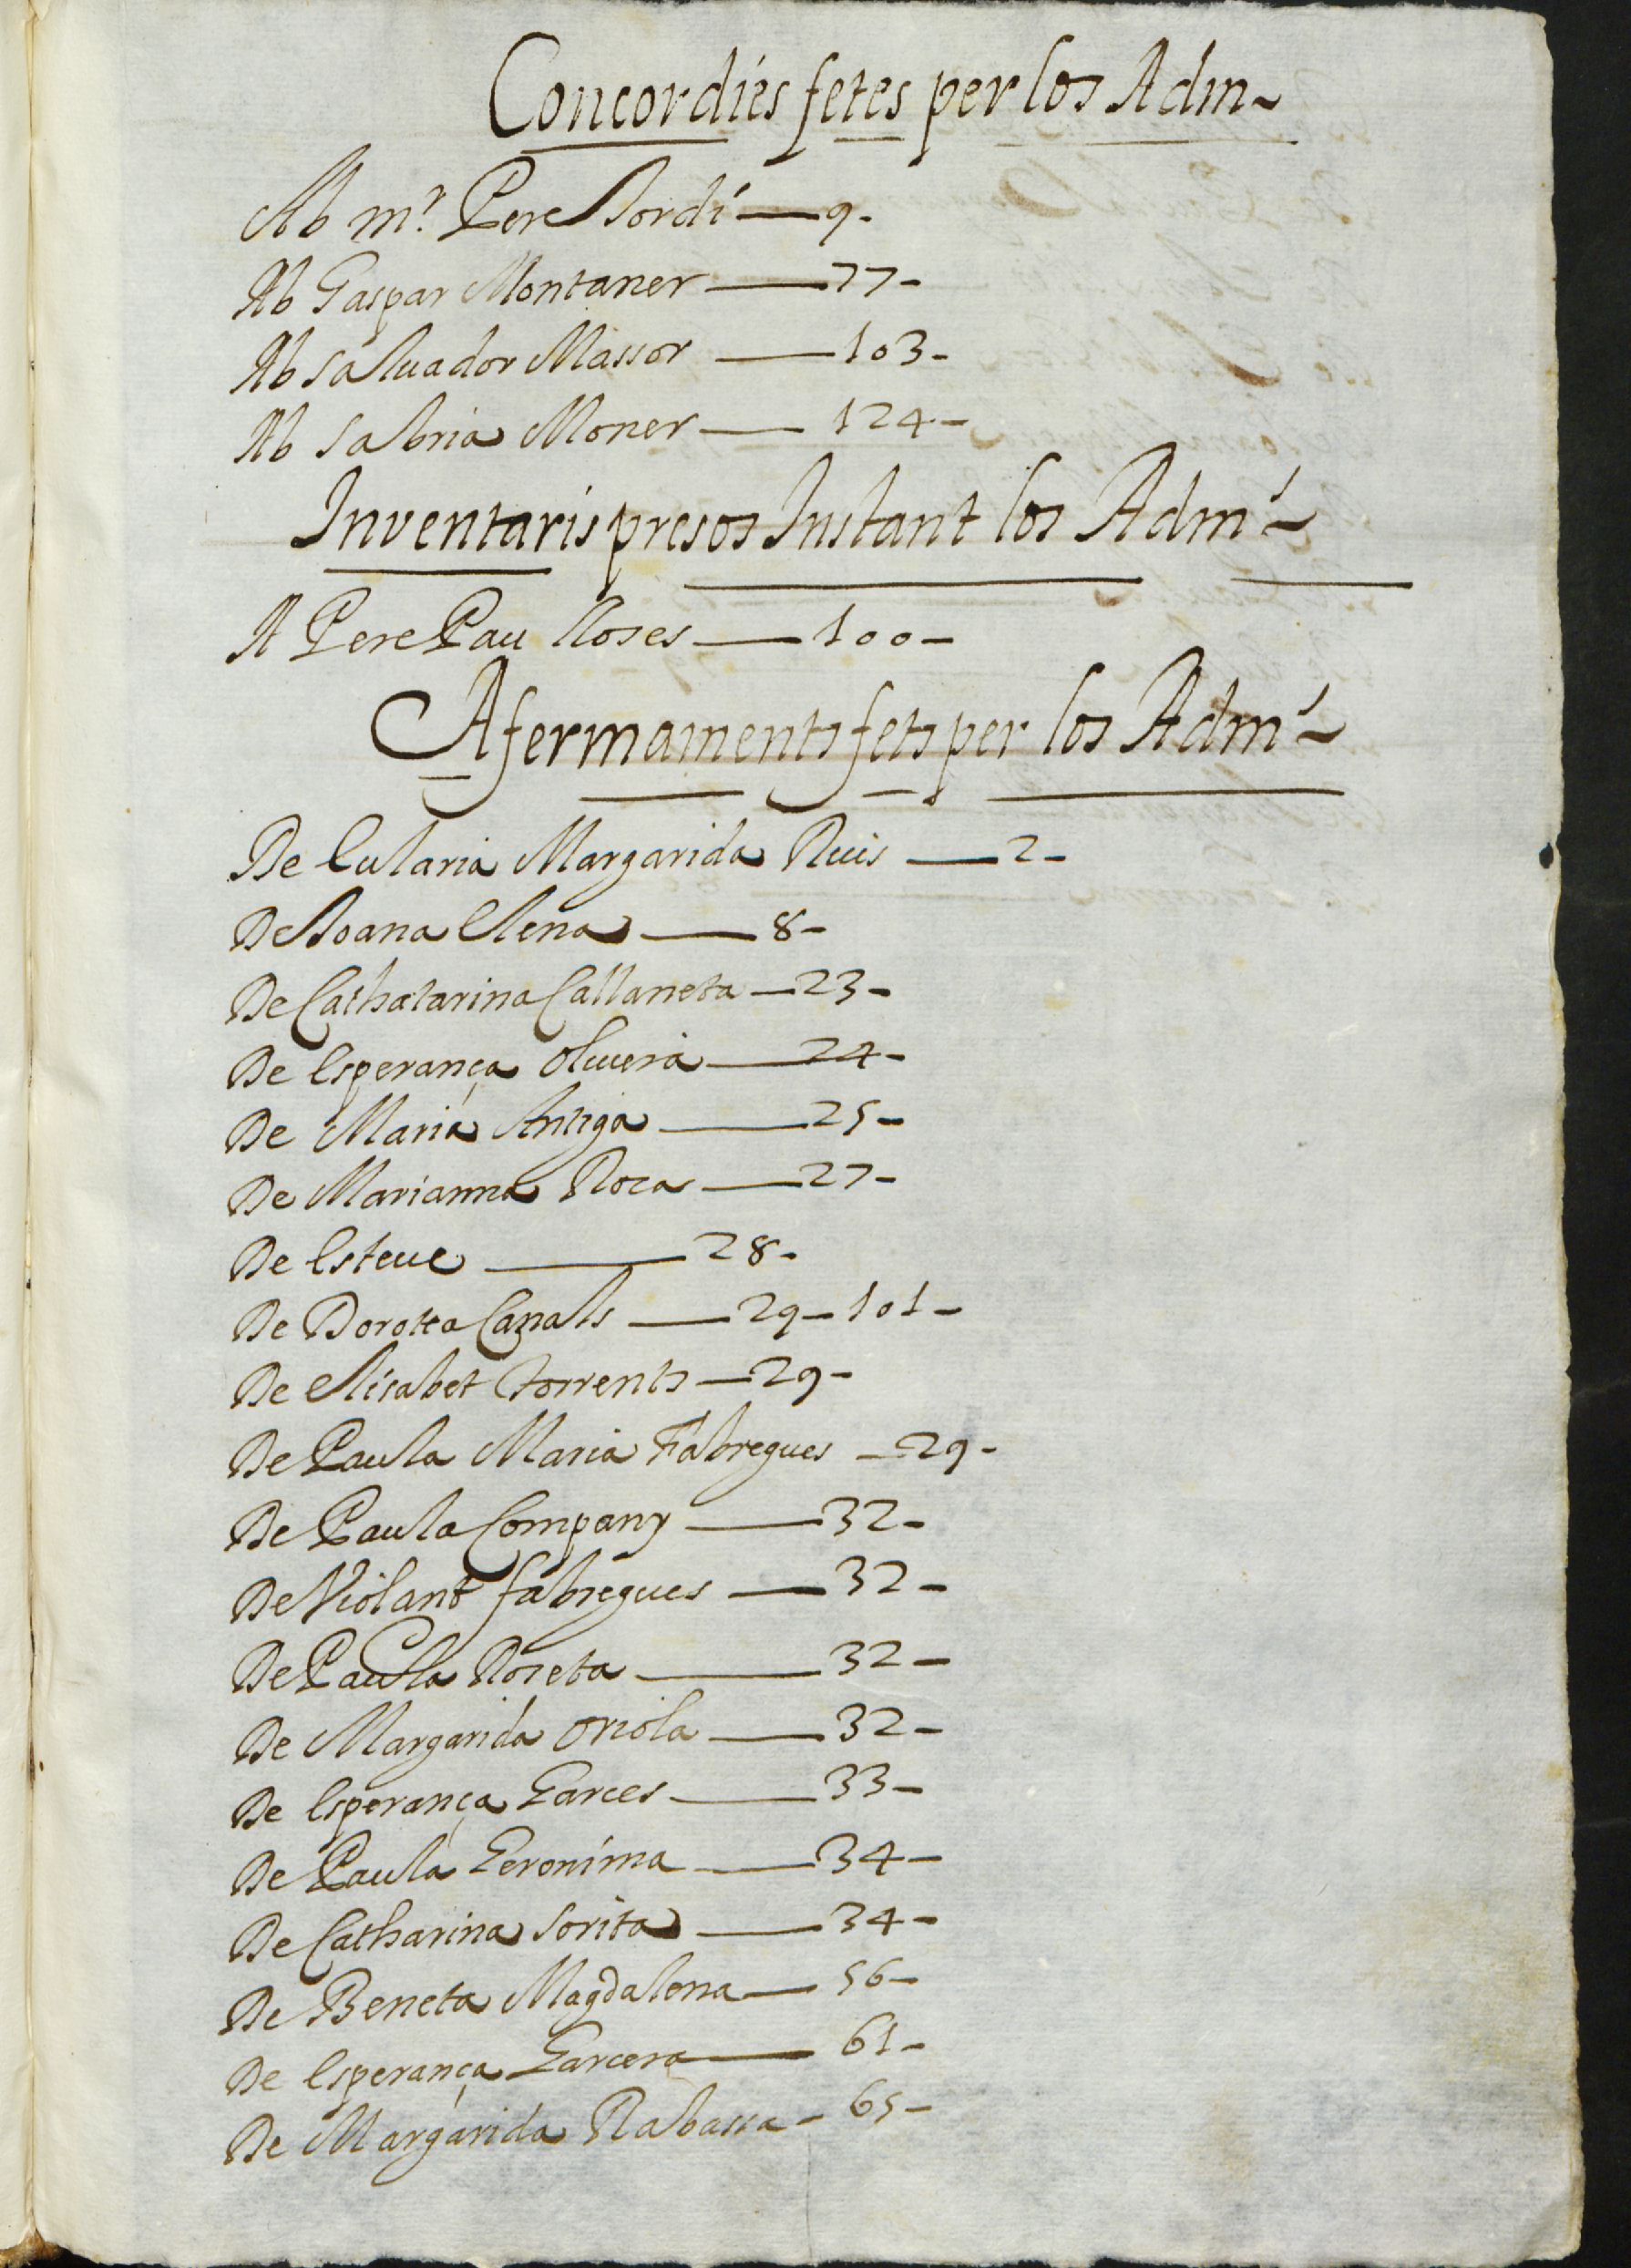 Concordies fetes per los Adm~
Ab mr. Pere Jordi — 9-
Ab Gaspar Montaner — 77-
Ab saluador Massot — 103-
Ab Sabria Moner — 124-
Inventaris presos Instant los Adm~
A Pere Pau Roses — 100-
Afermaments fets per los Adm~
De Eularia Margarida Ruis — 2-
De Joana Elena — 8-
De Cathatarina Callaneta — 23-
De Esperança Oliuera — 24-
De Maria Antiga — 25-
De Marianna Roca — 27-
De Esteue — 28-
De Dorotea Canals — 29 - 101-
De Elisabet Torrents — 29-
De Paula Maria Fabregues — 29-
De Paula Company — 32-
De Violant fabregues — 32-
De Paula Roseta — 32-
De Margarida Oriola — 32-
De Esperança Garces — 33-
De Paula Geronima — 34-
De Catharina Sorita — 34-
De Beneta Magdalena — 56-
De Esperança Garcera — 61-
De Margarida Rabassa - 65-